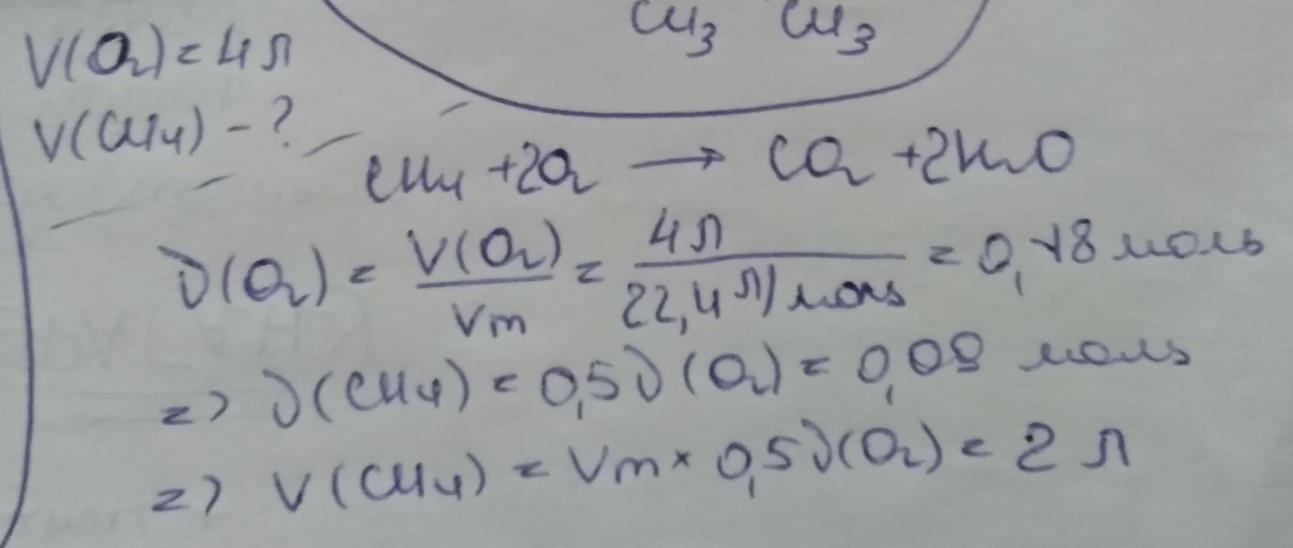 CH₃ CH₃
V(O₂) = 4 л
V(CH₄) - ?
CH₄ + 2O₂ → CO₂ + 2H₂O
ν(O₂) = V(O₂)/Vm = 4 л/22,4 л/моль = 0,18 моль
=> ν(CH₄) = 0,5ν(O₂) = 0,09 моль
=> V(CH₄) = Vm × 0,5ν(O₂) = 2 л